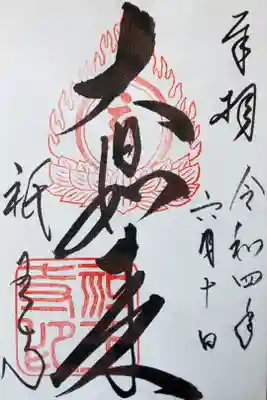 奉拝
令和四年
六月十日
大日如来
祇園寺